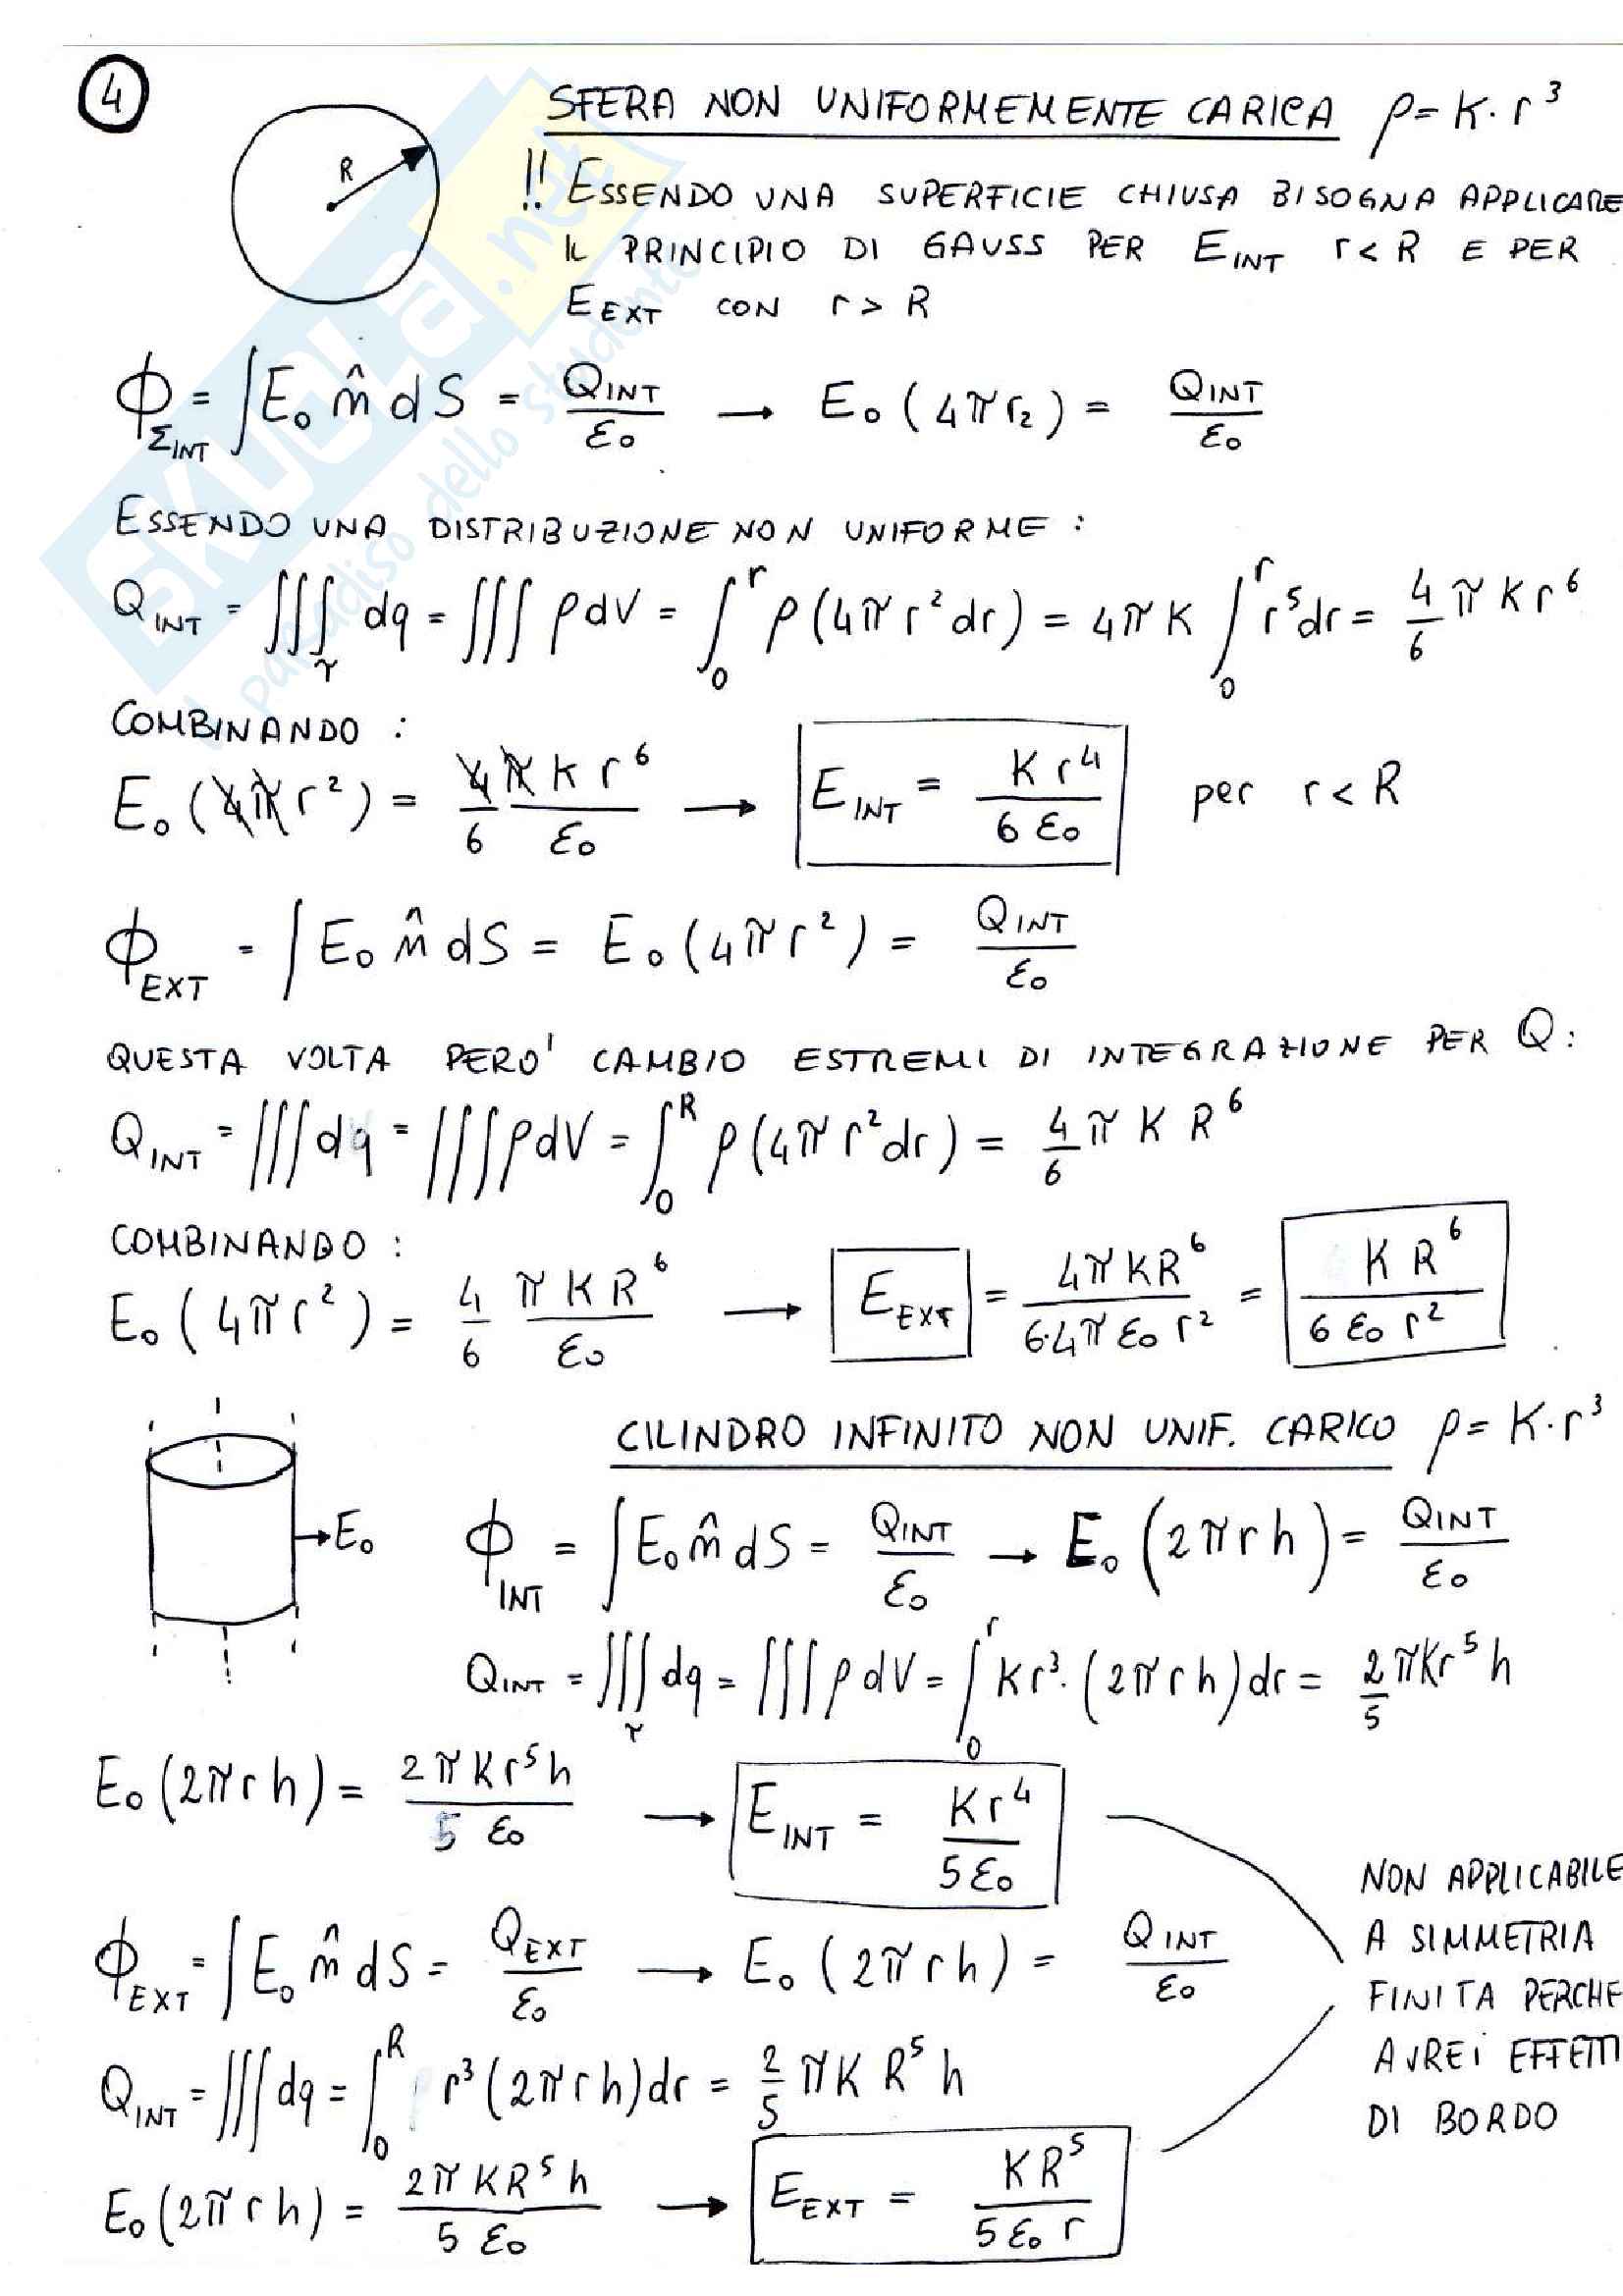 4
SFERA NON UNIFORMEMENTE CARICA ρ = K · r³
R
!! ESSENDO UNA SUPERFICIE CHIUSA BISOGNA APPLICARE
IL PRINCIPIO DI GAUSS PER E_INT r < R E PER
E_EXT CON r > R
Φ_Σ_INT = ∫ E₀ n̂ dS = Q_INT / ε₀ → E₀ (4π r₂) = Q_INT / ε₀
ESSENDO UNA DISTRIBUZIONE NON UNIFORME :
Q_INT = ∭_τ dq = ∭ ρ dV = ∫₀^r ρ (4π r² dr) = 4π K ∫₀^r r⁵ dr = 4/6 π K r⁶
COMBINANDO :
E₀ (4π r²) = 4π K r⁶ / 6 ε₀ → E_INT = K r⁴ / 6 ε₀ per r < R
Φ_EXT = ∫ E₀ n̂ dS = E₀ (4π r²) = Q_INT / ε₀
QUESTA VOLTA PERO' CAMBIO ESTREMI DI INTEGRAZIONE PER Q :
Q_INT = ∭ dq = ∭ ρ dV = ∫₀^R ρ (4π r² dr) = 4/6 π K R⁶
COMBINANDO :
E₀ (4π r²) = 4/6 π K R⁶ / ε₀ → E_EXT = 4π K R⁶ / 6·4π ε₀ r² = K R⁶ / 6 ε₀ r²
CILINDRO INFINITO NON UNIF. CARICO ρ = K · r³
E₀
Φ_INT = ∫ E₀ n̂ dS = Q_INT / ε₀ → E₀ (2π r h) = Q_INT / ε₀
Q_INT = ∭_τ dq = ∭ ρ dV = ∫₀^r K r³ · (2π r h) dr = 2/5 π K r⁵ h
E₀ (2π r h) = 2π K r⁵ h / 5 ε₀ → E_INT = K r⁴ / 5 ε₀
NON APPLICABILE
A SIMMETRIA
FINITA PERCHE
AVREI EFFETTI
DI BORDO
Φ_EXT = ∫ E₀ n̂ dS = Q_EXT / ε₀ → E₀ (2π r h) = Q_INT / ε₀
Q_INT = ∭ dq = ∫₀^R r³ (2π r h) dr = 2/5 π K R⁵ h
E₀ (2π r h) = 2π K R⁵ h / 5 ε₀ → E_EXT = K R⁵ / 5 ε₀ r
SKUOLA.net
il paradiso dello studente